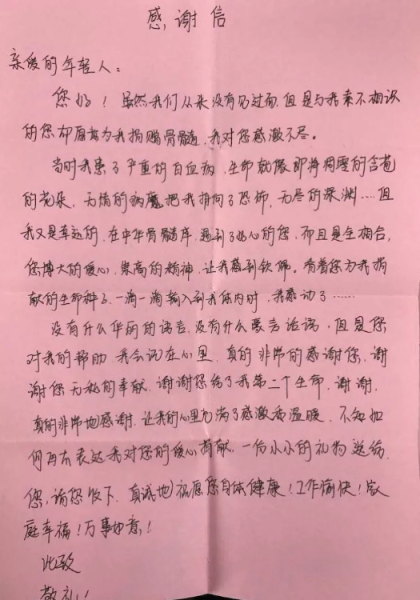 感谢信
亲爱的年轻人：
您好！虽然我们从来没有见过面，但是与我素不相识
的您却愿意为我捐赠骨髓，我对您感激不尽。
当时我患了严重的白血病，生命就像即将凋零的含苞
的花朵，无情的病魔把我推向了恐怖，无尽的深渊……但
我又是幸运的，在中华骨髓库，遇到了好心的您，而且是全相合，
您博大的爱心，崇高的精神，让我感到钦佩。看着您为我捐
献的生命种子一滴一滴输入到我体内时，我感动了……
没有什么华丽的语言，没有什么豪言治语，但是您
对我的帮助我会记在心里，真的非常的感谢您，谢
谢您无私的奉献，谢谢您给了我第二个生命，谢谢，
真的非常地感谢，让我的心里充满了感激与温暖，不知如
何再去表达我对您的爱心奉献，一份小小的礼物送给
您，请您收下，真诚地祝愿您身体健康！工作愉快！家
庭幸福！万事如意！
此致
敬礼！